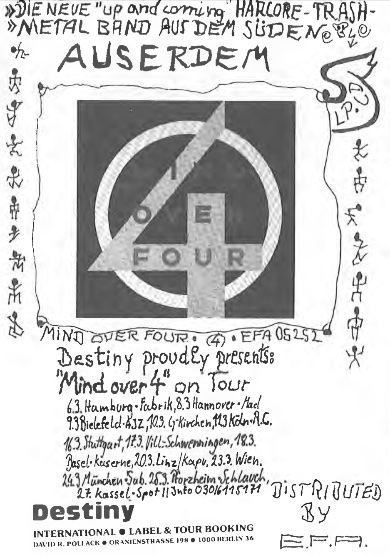 »DIE NEUE "up and coming" HARCORE-TRASH-
»METAL BAND AUS DEM SÜDEN
AUSERDEM
LP.CD
MIND
OVER
FOUR
MIND OVER FOUR · (4) · EFA 05252
Destiny proudly presents:
"Mind over 4" on Tour
6.3. Hamburg · Fabrik, 8.3 Hannover · Bad
9.3 Bielefeld · AJZ, 10.3. G-kirchen, 11.3 Köln · R.C.
16.3. Stuttgart, 17.3. Vill-Schwenningen, 18.3.
Basel · Kaserne, 20.3. Linz/Kapu, 23.3. Wien.
24.3 München Sub. 25.3. Pforzheim Schlauch,
27. Kassel · Spot // Info 030/6115171
Destiny
INTERNATIONAL ● LABEL & TOUR BOOKING
DAVID R. POLLACK ● ORANIENSTRASSE 198 ● 1000 BERLIN 36
DISTRIBUTED
BY
E.F.A.